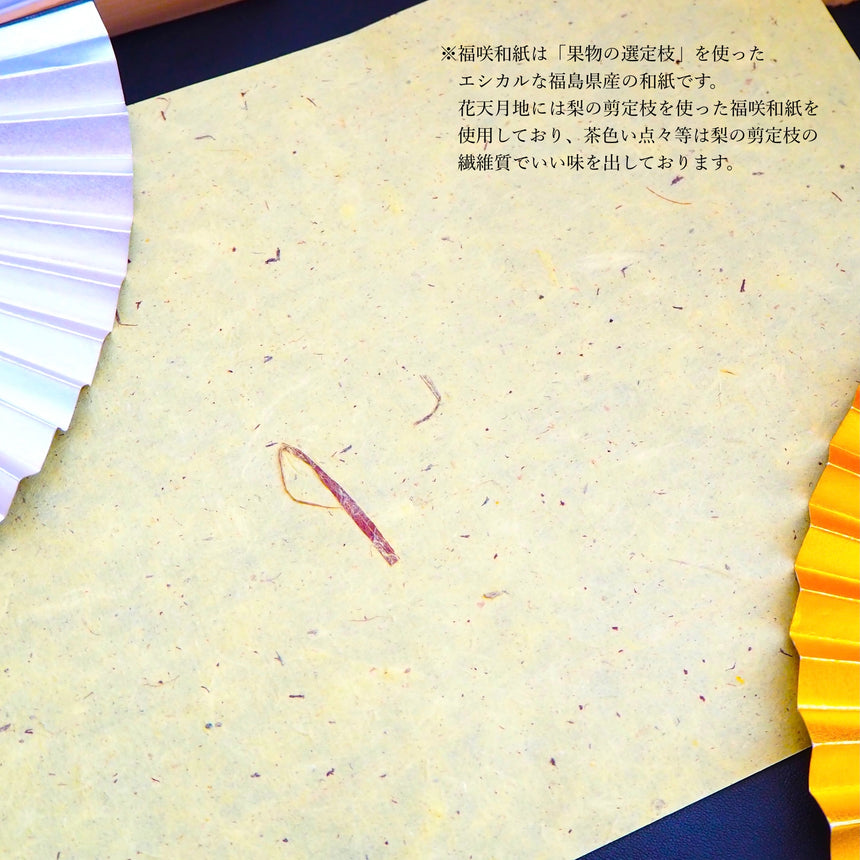 ※福咲和紙は「果物の選定枝」を使った
エシカルな福島県産の和紙です。
花天月地には梨の剪定枝を使った福咲和紙を
使用しており、茶色い点々等は梨の剪定枝の
繊維質でいい味を出しております。